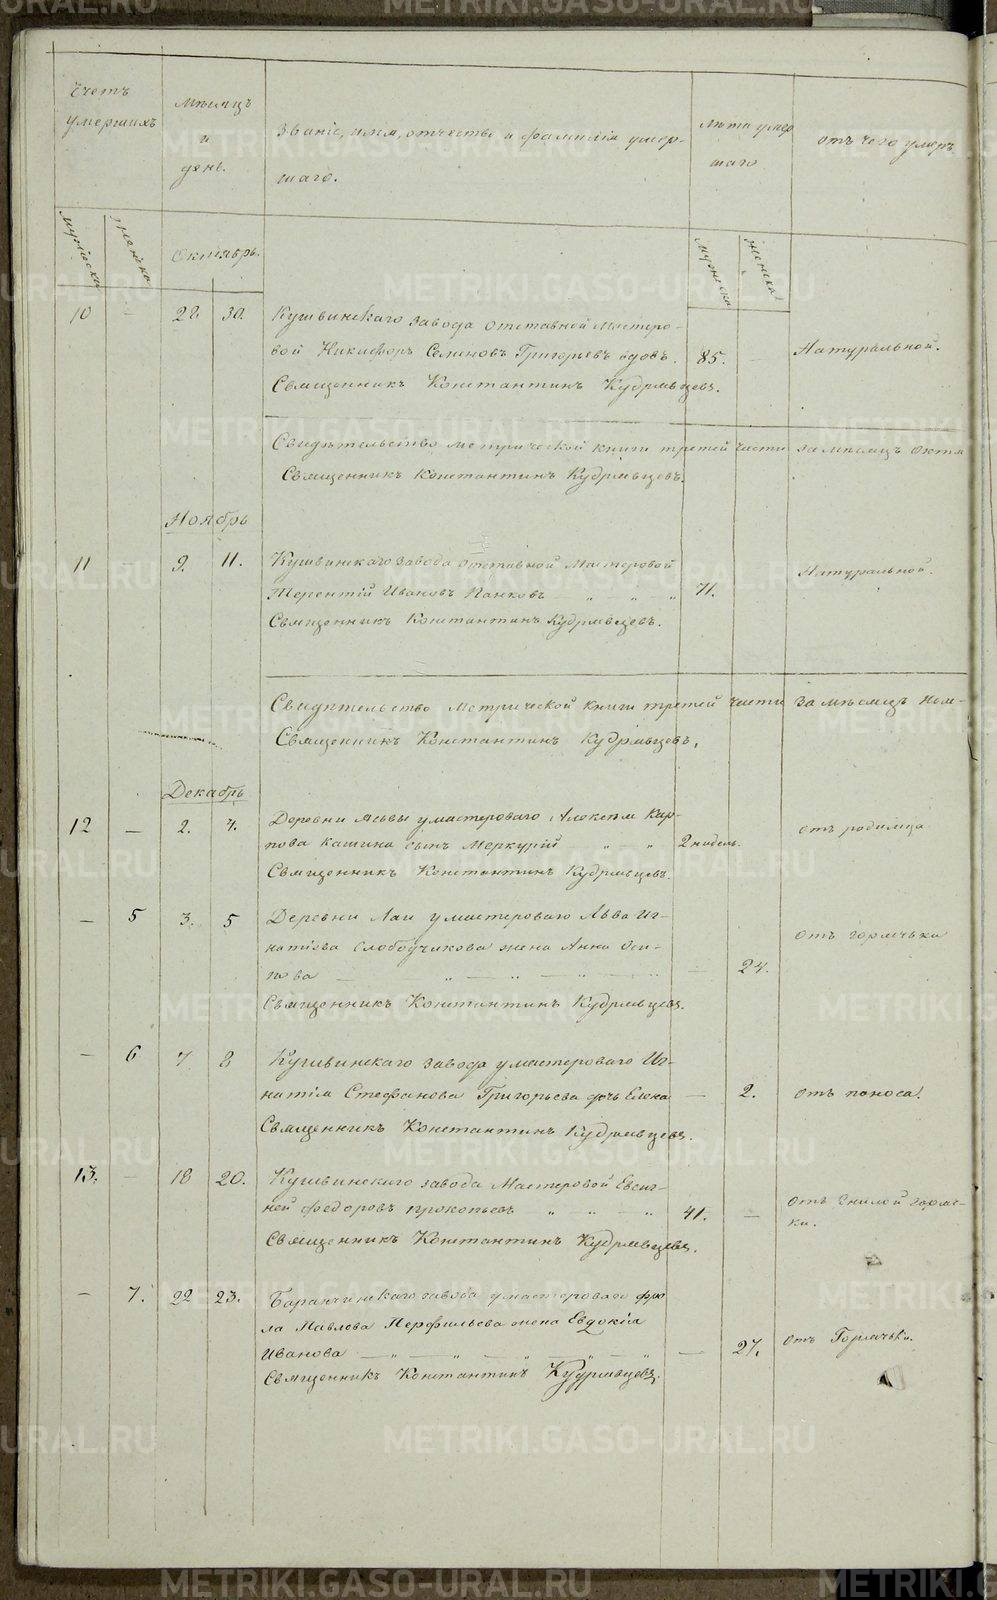 Счетъ умершихъ
Мѣсяцъ и день.
Званіе, имя, отчество и фамилія умер-
шаго.
Лѣта умер
шаго
отъ чего умеръ
мужеска
женска
Октябрь.
мужеска
женска
10 - 22. 30. Кушвинскаго завода отставной мастеро-
вой Никифоръ Семеновъ Григорьевъ вдовъ. 85. - Натуральной.
Священникъ Константинъ Кудрявцевъ.
Свидѣтельство метрической книги третей части за мѣсяцъ Октя
Священникъ Константинъ Кудрявцевъ.
Ноябрь
11 9. 11. Кушвинскаго завода отставной мастеровой Натуральной.
Терентій Ивановъ Панковъ „ „ „ 71.
Священникъ Константинъ Кудрявцевъ.
Свидѣтельство Метрической книги третей части за мѣсяцъ Ноя-
Священникъ Константинъ Кудрявцевъ.
Декабрь
12 - 2. 4. Деревни у мастероваго Алексѣя Кар- отъ родимца
пова Кашина сынъ Меркурій „ „ 2 недѣль.
Священникъ Константинъ Кудрявцевъ.
- 5 3. 5 Деревни Лаи у мастероваго Льва Иг-
натіева Слободчикова жена Анна Оси- отъ горячька
пова „ „ „ „ - 24.
Священникъ Константинъ Кудрявцевъ.
- 6 7 8 Кушвинскаго завода у мастероваго Иг-
натія Стефанова Григорьева дочь Елена - 2. отъ поноса.
Священникъ Константинъ Кудрявцевъ.
13. - 18 20. Кушвинскаго завода Мастеровой Евсиг- отъ гнилой горяч-
ней Федоровъ Прокопьевъ „ „ „ 41. - ки.
Священникъ Константинъ Кудрявцевъ.
- 7. 22 23. Баранчинскаго завода у мастероваго Фро
ла Павлова Перфильева жена Евдокія
Иванова „ „ „ „ „ - 27. отъ Горячьки.
Священникъ Константинъ Кудрявцевъ.
METRIKI.GASO-URAL.RU